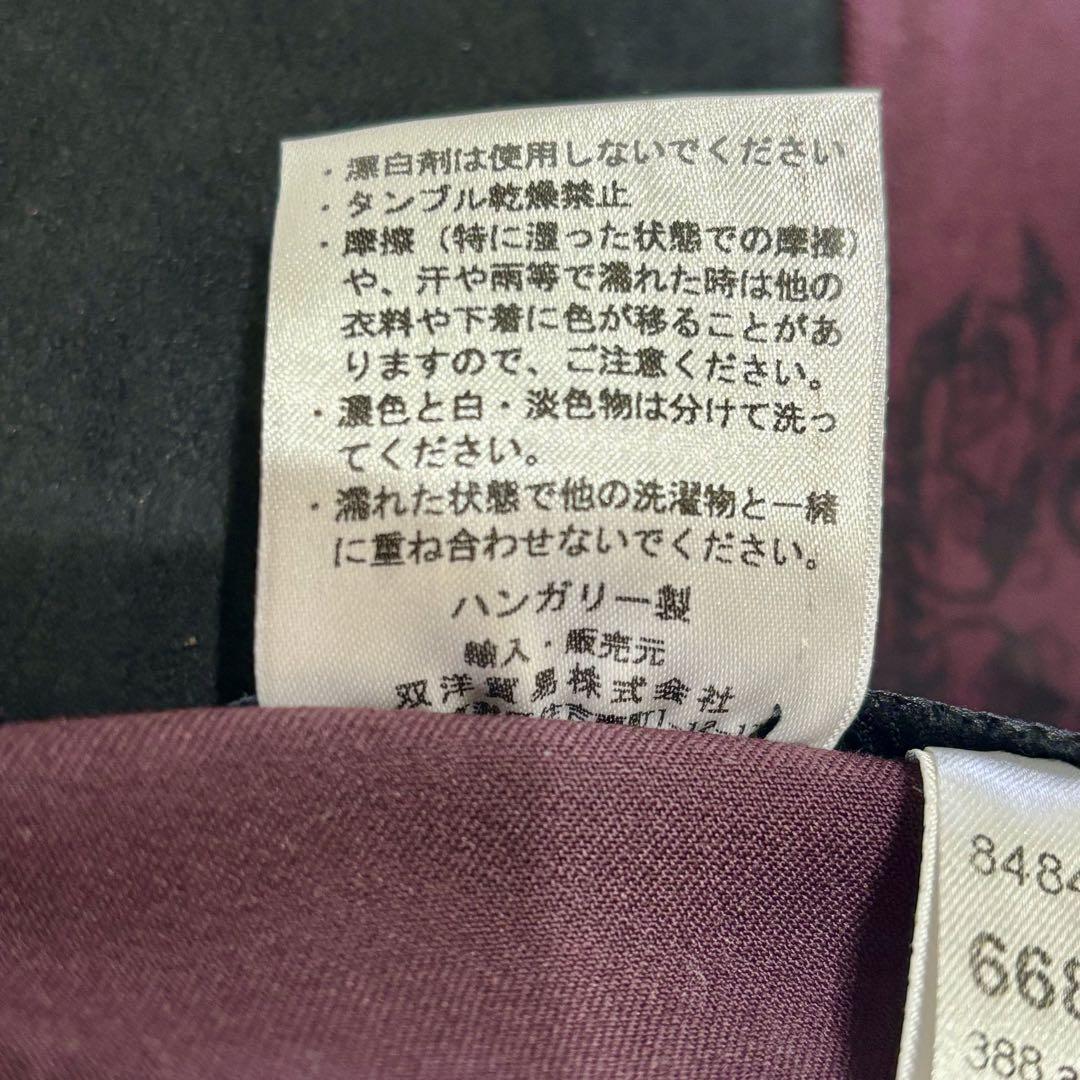 ・漂白剤は使用しないでください
・タンブル乾燥禁止
・摩擦（特に湿った状態での摩擦）
や、汗や雨等で濡れた時は他の
衣料や下着に色が移ることがあ
りますので、ご注意ください。
・濃色と白・淡色物は分けて洗っ
てください。
・濡れた状態で他の洗濯物と一緒
に重ね合わせないでください。
ハンガリー製
輸入・販売元
双洋貿易株式会社
8484
668
388